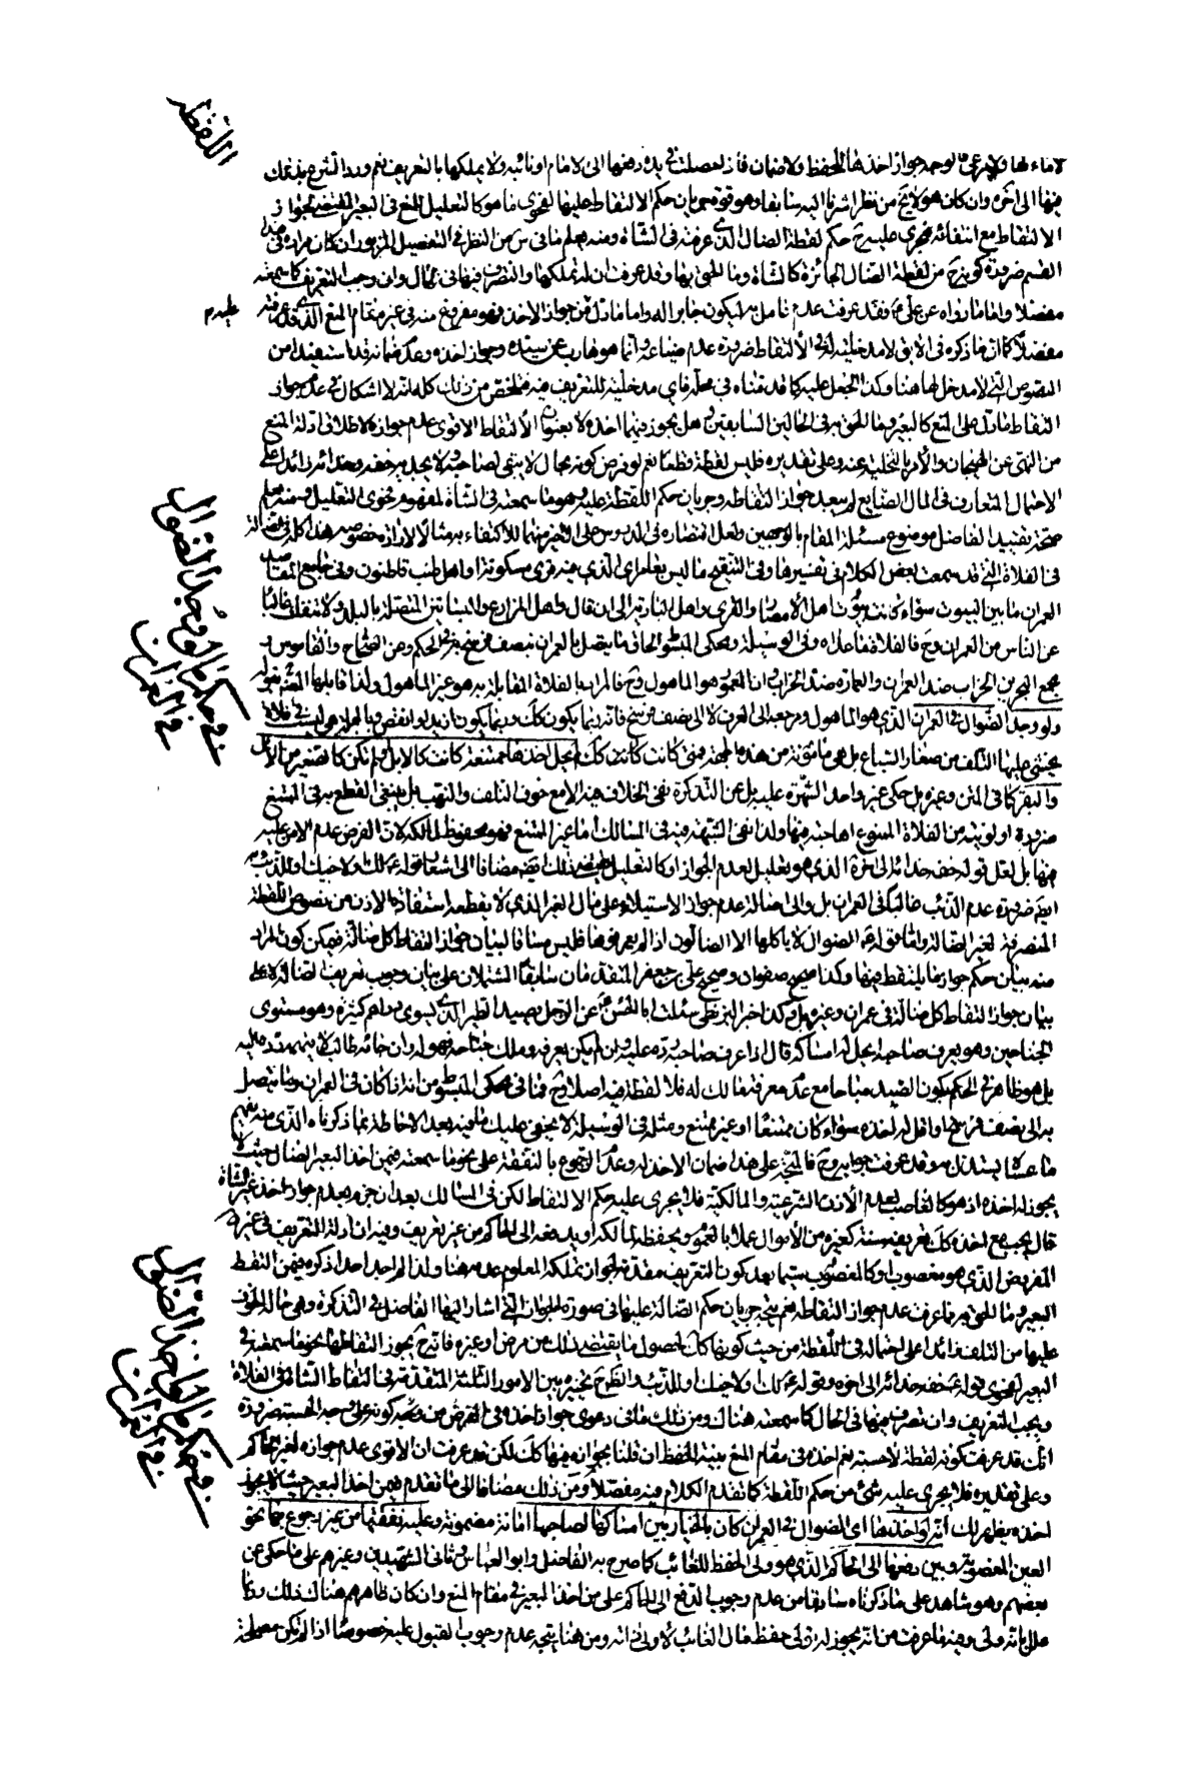 اللقطة
لا ماء لها ولا مرعى فالوجه جواز اخذها للحفظ ولا ضمان فاذا حصلت في يده دفعها الى الامام او نائبه ولا يملكها بالتعريف نعم ورد الشرع بذلك
فيها الى آخره وان كان هو لا يخ من نظر اشرنا اليه سابقا وهو قوة جريان حكم الالتقاط عليها لفحوى ما هو كالتعليل للمنع في البعير
الالتقاط مع انتفائه فيجري عليه ح حكم لقطة الضال الذي عرفته في الشاة ومنه يعلم ما في س من النظر في التفصيل المزبور ان كان مراده في هذا
القسم ضرورة كونه ح من لقطة الضال الجائزة كالشاة وما الحق بها وقد عرفت ان له تملكها والتصرف فيها في الحال وان وجب التعريف كما سمعته
مفصلا واما ما رواه عن علي ع فقد عرفت عدم عامل به ليكون جابرا له واما ما دل من جواز الاخذ فهو مفروغ منه في غير مقام المنع الذي قد عرفته
عليه م
مفصلا كما ان ما ذكره في الابق لا مدخلية له في الالتقاط ضرورة عدم ضياعه وانما هو هارب عن سيده وجواز اخذه وعدم ضمانه قد استفيد من
النصوص التي لا مدخل لها هنا وكذا الجعل عليه كما قدمناه في محله فاي مدخلية للتعريف فيه فتلخص من ذلك كله انه لا اشكال في عدم جواز
التقاط ما دل على المنع كالبعير وما الحق به في الحالين السابقين وهل يجوز فيهما اخذه لا بعنوان الالتقاط الاقوى عدم جوازه لاطلاق ادلة المنع
من النهي عن الهيجان والامر بالتخلية عنه وعلى تقديره فليس لقطة قطعا نعم لو فرض كونه بحال لا يبقى لصاحبه ولا يجديه خفه وحذائه زائدا على
الاحتمال المتعارف في المال الضايع لم يبعد جواز التقاطه وجريان حكم اللقطة عليه وهو ما سمعته في الشاة لمفهوم فحوى التعليل ومنه يعلم
صحة تقييد الفاضل موضوع مسئلة المقام بالوجهين ولعل اقتصاره في الدروس على الاخير منهما للاكتفاء به مثالا لا لارادة خصوصه هذا كله في الضالة
في حكم ما لو وجد الضوال في العمران
في الفلاة التي قد سمعت بعض الكلام في تفسيرها وفي التنقيح ما ليس بعامر اي الذي ليس فيه قرى مسكونة واهل طنب قاطنون وفي جامع المقاصد
العمران ما بين البيوت سواء كانت بيوت اهل الامصار والقرى واهل البادية الى ان قال واهل المزارع والبساتين المتصلة بالبلد ولا تنفك غالبا
عن الناس من العمران وح فالفلاة ما عداه وفي الوسيلة ومحكى المبسوط الحاق ما يتصل بالعمران بنصف فرسخ به في الحكم وعن الصحاح والقاموس و
مجمع البحرين الخراب ضد العمران والعمارة ضد الخراب وان المعمور هو المأهول وح فالمراد بالفلاة المقابلة به هو غير المأهول ولذا قابلها المصنف بقوله
ولو وجد الضوال في العمران الذي هو المأهول ومرجعه الى العرف لا الى نصف فرسخ فانه ربما يكون كك وربما يكون ازيد او انقص وبالجملة هو ليس في فلاة
يخشى عليها التلف من صغار السباع بل هي مأمونة من هذه الجهة فمتى كانت كك لم يحل اخذها ممتنعة كانت كالابل او لم تكن كالصغير من الابل
والبقر كما في المتن وغيره بل حكى غير واحد الشهرة عليه بل عن التذكرة نفي الخلاف فيه الا مع خوف التلف والنهب بل ينبغي القطع به في الممتنع
ضرورة اولويته من الفلاة الممنوع اهاجته فيها ولذا نفى الشبهة فيه في المسالك اما غير الممتنع فهو محفوظ لمالكه لان الفرض عدم الامن عليه
فيها بل لعل قوله خفه حذائه الى آخره الذي هو تعليل لعدم الجواز او كالتعليل يقتضي ذلك ايضا مضافا الى اشعار قوله ع هي لك او لاخيك او للذئب
ايضا ضرورة عدم الذئب غالبا في العمران بل والى اصالة عدم جواز الاستيلاء على مال الغير الذي لا يقطعه استفادة الاذن من نصوص اللقطة
المنصرفة لغير الضالة واما قوله ع الضوال لا يأكلها الا الضالون اذا لم يعرفوها فليس مساقا لبيان جواز التقاط كل ضالة فيمكن كون المراد
منه بيان حكم جواز ما يلتقط فيها وكذا صحيح صفوان وصحيح علي بن جعفر المتقدمان سابقا المشتملان على بيان وجوب تعريف الضالة لا على
بيان جواز التقاط كل ضالة في عمران وغيره بل وكذا خبر البزنطي سئلت ابا الحسن ع عن الرجل يصيد الطير الذي يسوى دراهم كثيرة وهو مستوى
الجناحين وهو يعرف صاحبه ايحل له امساكه قال اذا عرف صاحبه رده عليه وان لم يكن يعرفه وملك جناحه فهو له وان جائه طالب لا يتهمه رده عليه
بل هو ظاهر في الحكم بكون الصيد مباحا مع عدم معرفة مالك له فلا لقطة فيه اصلا وح فما في محكى المبسوط من انه اذا كان في العمران وما يتصل
به الى نصف فرسخ او اقل له اخذه سواء كان ممتنعا او غير ممتنع ومثله في الوسيلة لا يخفى عليك ما فيه بعد الاحاطة بما ذكرناه الذي منه يعلم
ما عساه يستدل به وقد عرفت جوابه وح فالمتجه على هذا ضمان الآخذ له وعدم الرجوع بالنفقة على نحو ما سمعته فيمن اخذ البعير الضال حيث لا
يجوز له اخذه اذ هو كالغاصب بعدم الاذن الشرعية والمالكية فلا يجري عليه حكم الالتقاط لكن في المسالك بعد ان جزم بعدم جواز اخذ غير الشاة
قال يجب مع اخذه كك تعريفه سنة كغيره من الاموال عملا بالعموم ويحفظه لمالكه او يدفعه الى الحاكم من غير تعريف وفيه ان ادلة التعريف في غير
المفروض الذي هو مغصوب او كالمغصوب سيما بعد كون التعريف مقدمة لجواز تملكه المعلوم عدمه هنا ولذا لم اجد احدا ذكره فيمن التقط
في حكم ما لو اخذ الضوال في العمران
البعير وما الحق به مما عرفت عدم جواز التقاطه نعم يتجه جريان حكم الضالة عليها في صورة الخوف التي اشار اليها الفاضل في التذكرة وهي حالة الخوف
عليها من التلف زائدا على احتماله في اللقطة من حيث كونها كك لحصول ما يقتضي ذلك من مرض او غيره فانه ح يجوز التقاطها بنحو ما سمعته في
البعير لفحوى قوله ع خفه حذائه الى آخره وقوله ع هي لك او لاخيك او للذئب الظاهر ح تخييره بين الامور الثلثة المتقدمة في التقاط الشاة في الفلاة
ويجب التعريف وان تصرف فيها في الحال كما سمعته هناك ومن ذلك ما في دعوى جواز اخذه في الفرض من وجه كونه على وجه الحسبة ضرورة
انك قد عرفت كونه لقطة لا حسبة نعم اخذه في مقام المنع بنية الحفظ ان قلنا بجوازه فيها كك لكن قد عرفت ان الاقوى عدم جوازه لغير الحاكم
وعلى تقديره فلا يجري عليه شئ من حكم اللقطة كما تقدم الكلام فيه مفصلا ومن ذلك مضافا الى ما تقدم فيمن اخذ البعير حيث لا يجوز
اخذه يظهر لك انه لو اخذها اي الضوال في العمران كان بالخيار بين امساكها لصاحبها امانة مضمونة وعليه نفقتها من غير رجوع بها بحق
العين المغصوبة وبين دفعها الى الحاكم الذي هو ولي الحفظ للغائب كما صرح به الفاضل وابو العباس وثاني الشهيدين وغيرهم على ما حكي عن
بعضهم وهو شاهد على ما ذكرناه سابقا من عدم وجوب الدفع الى الحاكم على من اخذ البعير في مقام المنع وان كان ظاهرهم هناك ذلك وكذا
علل بانه ولي وفيه ما عرفت من انه يجوز له تولي حفظ مال الغائب لا ولي انه ومن هنا يتجه عدم وجوب القبول عليه خصوصا اذا لم تكن مصلحة